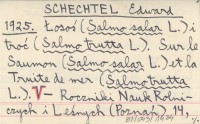 SCHECHTEL Edward
1925. Łosoś (Salmo salar L.) i
troć (Salmo trutta L.). Sur le
Saumon (Salmo salar L.) et la
Truite de mer (Salmo trutta
L.). V – Roczniki Nauk Rolni-
czych i Leśnych (Poznań) 14,